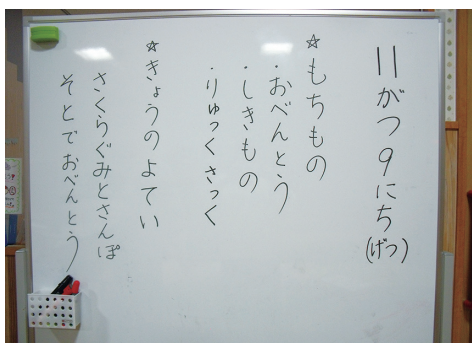 11がつ9にち(げつ)
☆もちもの
・おべんとう
・しきもの
・りゅっくさっく
☆きょうのよてい
さくらぐみとさんぽ
そとでおべんとう